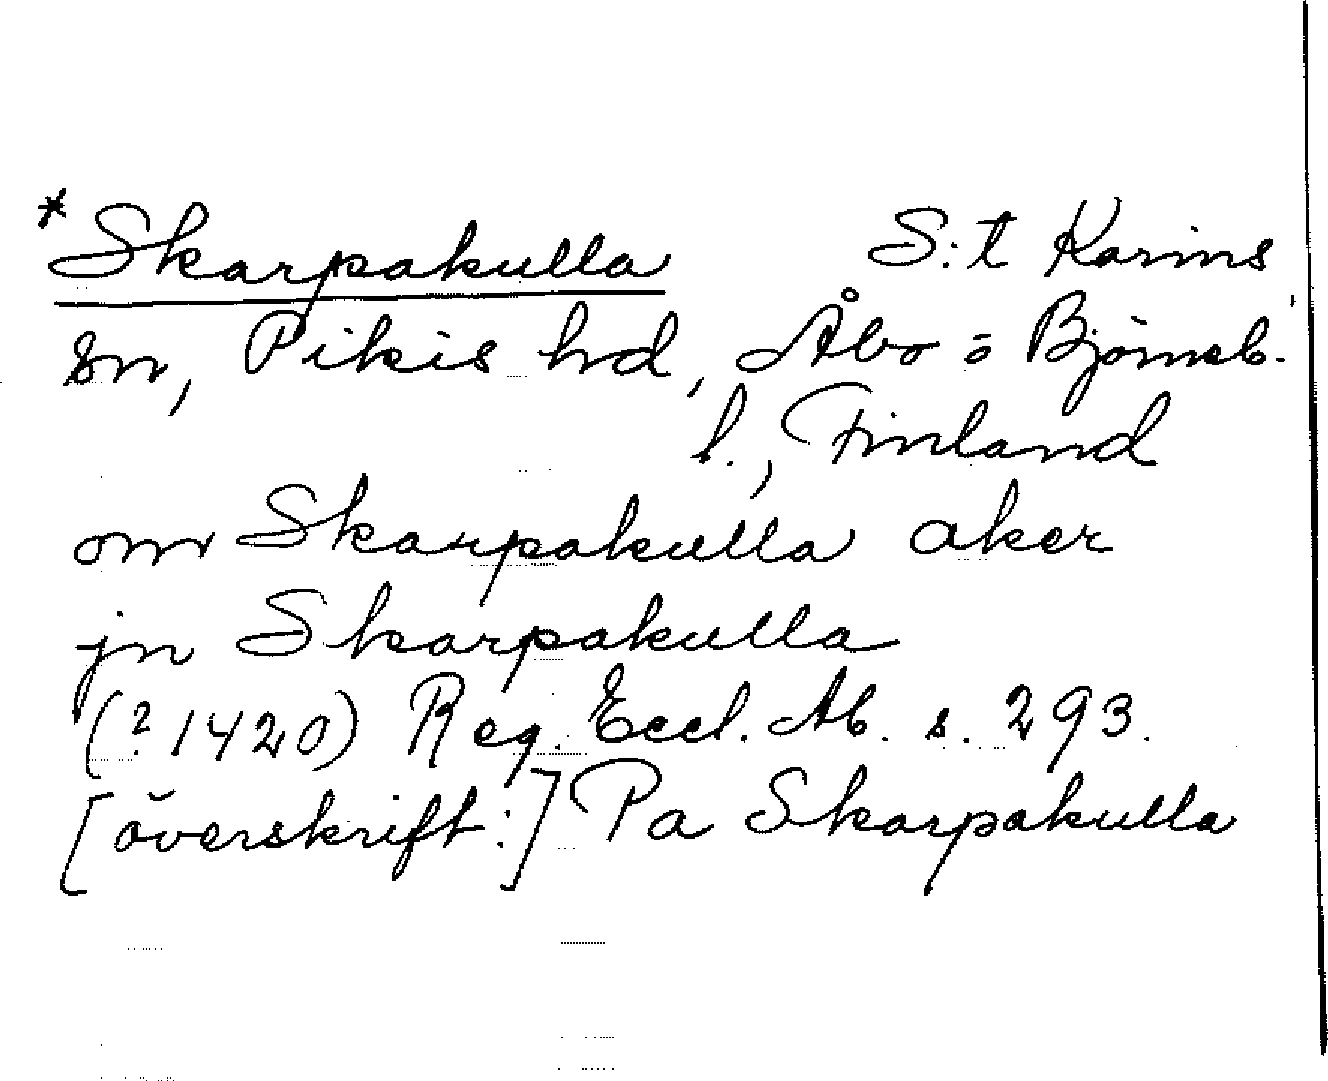 *Skarpakulla S:t Karins
sn, Pikis hd, Åbo o Björneb.
l., Finland
om Skarpakulla aker
jn Skarpakulla
(?1420) Reg. Eccl. Ab. s. 293.
[överskrift:] Pa Skarpakulla